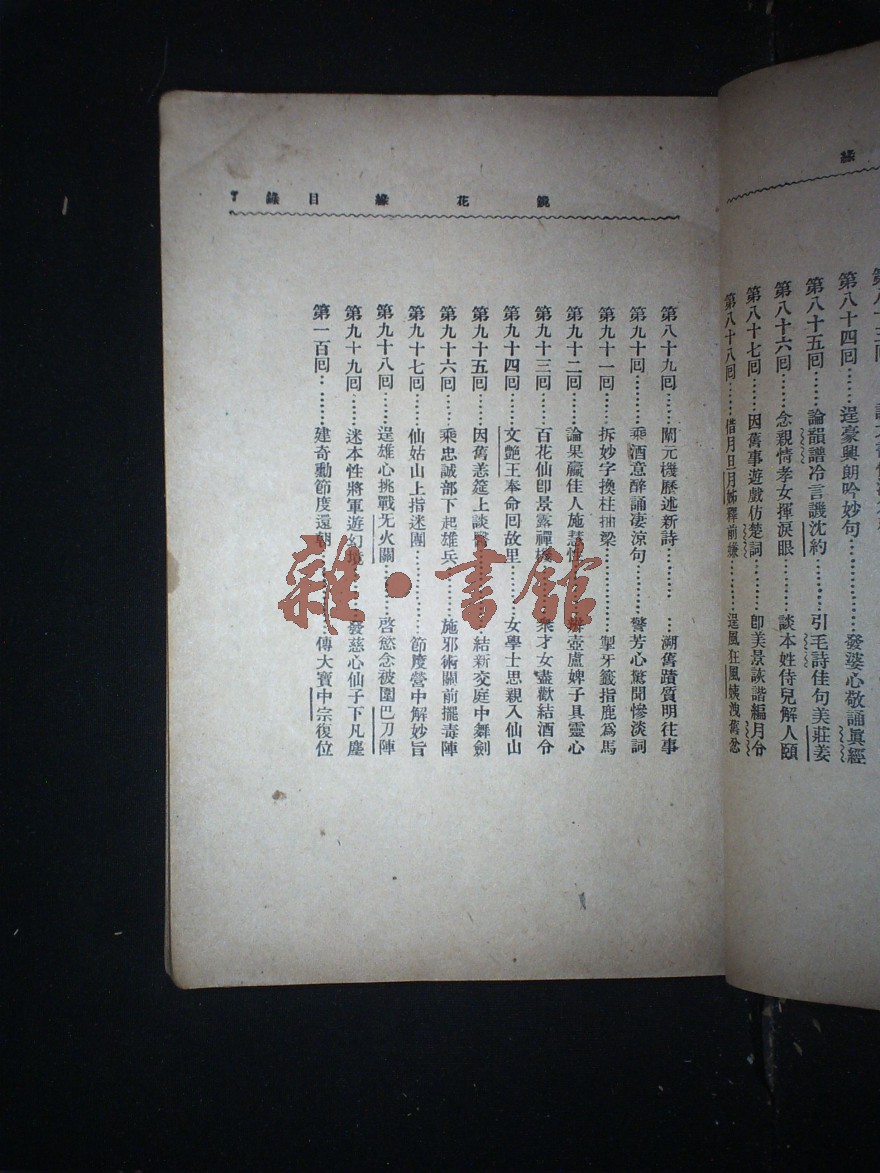 緣
第八十四回……逞豪興朗吟妙句………發婆心敬誦眞經
第八十五回……論韻譜冷言譏沈約………引毛詩佳句美莊姜
第八十六回……念親情孝女揮淚眼………談本姓侍兒解人頤
第八十七回……因舊事遊戲仿楚詞………卽美景詼諧編月令
第八十八回……借月旦月姊釋前嫌………逞風狂風姨洩舊忿
鏡花緣 目錄 7
第八十九回……闡元機歷述新詩………溯舊蹟質明往事
第九十回……乘酒意醉誦凄涼句………警芳心驚聞慘淡詞
第九十一回……拆妙字換柱抽梁………掣牙籤指鹿爲馬
第九十二回……論果臝佳人施慧性………辨壺盧婢子具靈心
第九十三回……百花仙卽景露禪機………衆才女盡歡結酒令
第九十四回……文艷王奉命回故里………女學士思親入仙山
第九十五回……因舊恙筵上談醫………結新交庭中舞劍
第九十六回……乘忠誠部下起雄兵………施邪術關前擺毒陣
第九十七回……仙姑山上指迷團………節度營中解妙旨
第九十八回……逞雄心挑戰无火關………啓慾念被圍巴刀陣
第九十九回……迷本性將軍遊幻境………發慈心仙子下凡塵
第一百回………建奇勳節度還朝………傳大寶中宗復位
雜·書館